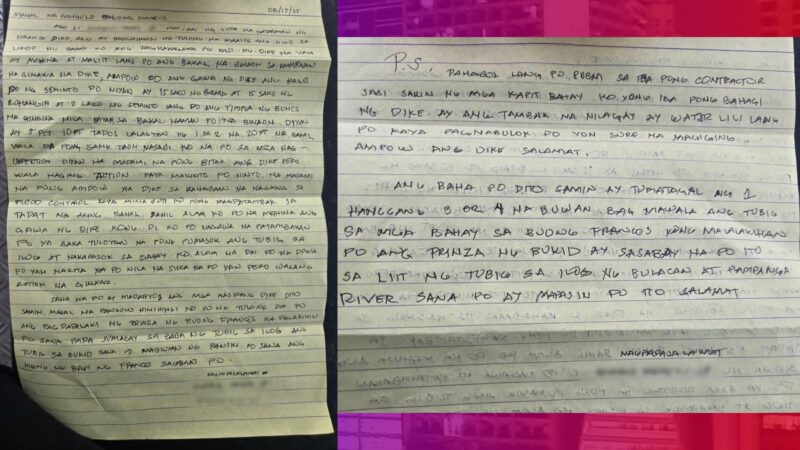 08/15/25
MAHAL NA PANGULO BONGBONG MARCOS
AKO SI MAY-ARI NG LUPA NA
SIRANG DIKE. AKO AY HUMIHINGI NG TULONG NA MAAYOS ANG DIKE SA
LIKOD NG BAHAY KO. ANG PO KASI NG DIKE NA YAN
AY MAHINA AT MALIIT LANG PO ANG BAKAL NA BINAON SA
NA GINAWA NA DIKE, AMPOW PO ANG GAWA NG DIKE ANG HALO
PO NG SEMINTO PO NIYAN AY 15 SAKO NG AT 15 SAKO NG
BUHANGIN AT SAKO NG SEMINTO LANG PO ANG TIMPLA NG BUHOS
NA GINAWA NILA DIYAN SA BAKAL NAMAN PO NA BINAON DIYAN
AY 5 PCS 10 FT TAPOS LALAGYAN NG 1 NA 20 FT NA BAKAL
WALA PA PONG ISANG TAON NASABI KO NA PO SA MGA NAG-
INSPECTION DIYAN NA MADAMI NA PONG BITAK ANG DIKE PERO
WALA NAGING ACTION KAYA NAMAN NA MADAMI
NA PONG AMPOW NA DIKE SA KANAGAN NA NAGAWA SA
FLOOD CONTROL. KAYA KO PONG NAGPATAMBAK SA
TAPAT NG AKING BAHAY. DAHIL ALAM KO PO NA MAHINA ANG
GAWA NG DIKE KONG DI KO PO NAGAWA NA PATAMBAKAN
PO YA BAKA TULOYAN NA PONG PUMASOK ANG TUBIG SA
ILOG AT NAKAPASOK SA BAHAY KO. ALAM NA DIN PO NG DPWH
PO YAN NAKITA NA PO NILA NA SIRA NA PO YAN PERO WALANG
ACTION NA GINAWA.
SANA NA PO AY MAPAAYOS ANG MGA NASIRANG DIKE DITO
SAMIN. MAHAL NA PANGULO HIHINGI KO PO NG TULONG DIN PO
ANG PAGPATALAKI NG NG BUONG FRANCES NA PALAKIHIN
PO SANA PARA SUMABAY SA BABA NG TUBIG SA ILOG ANG
TUBIG SA BUKID SANA PO MABIGYAN NG PANSIN PO SANA ANG
HILING NG BRGY NG FRANCES SALAMAT PO.
NAGPAPASALAMAT
P.S. PAHABOL LANG PO POEM SA IBA PONG CONTRACTOR
SABI SAKIN NG MGA KAPIT BAHAY KO. YONG IBA PONG BAHAGI
NG DIKE AY ANG TAMBAK NA NILAGAY AY WATER LILI LANG
PO KAYA PAGNABULOK PO YON SURE NA MAGIGING
AMPOW ANG DIKE SALAMAT.
ANG BAHA PO DITO SAMIN AY TUMATAGAL NG 2
HANGGANG 3 OR 4 NA BUWAN BAG MAWALA ANG TUBIG
SA MGA BAHAY SA BUONG FRANCES KONG MALALAKIHAN
PO ANG PRINZA NG BUKID AY SASABAY NA PO ITO
SA LIIT NG TUBIG SA ILOG NG BULACAN AT PAMPANGA
RIVER SANA PO AY MAPASIN PO ITO SALAMAT
NAGPAPASALAMAT